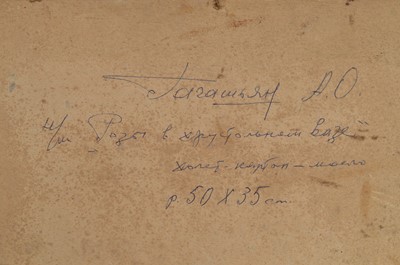 Гагашьян А.О.
н/м „Розы в хрустальной вазе"
холст-картон-масло
р. 50 X 35 см.